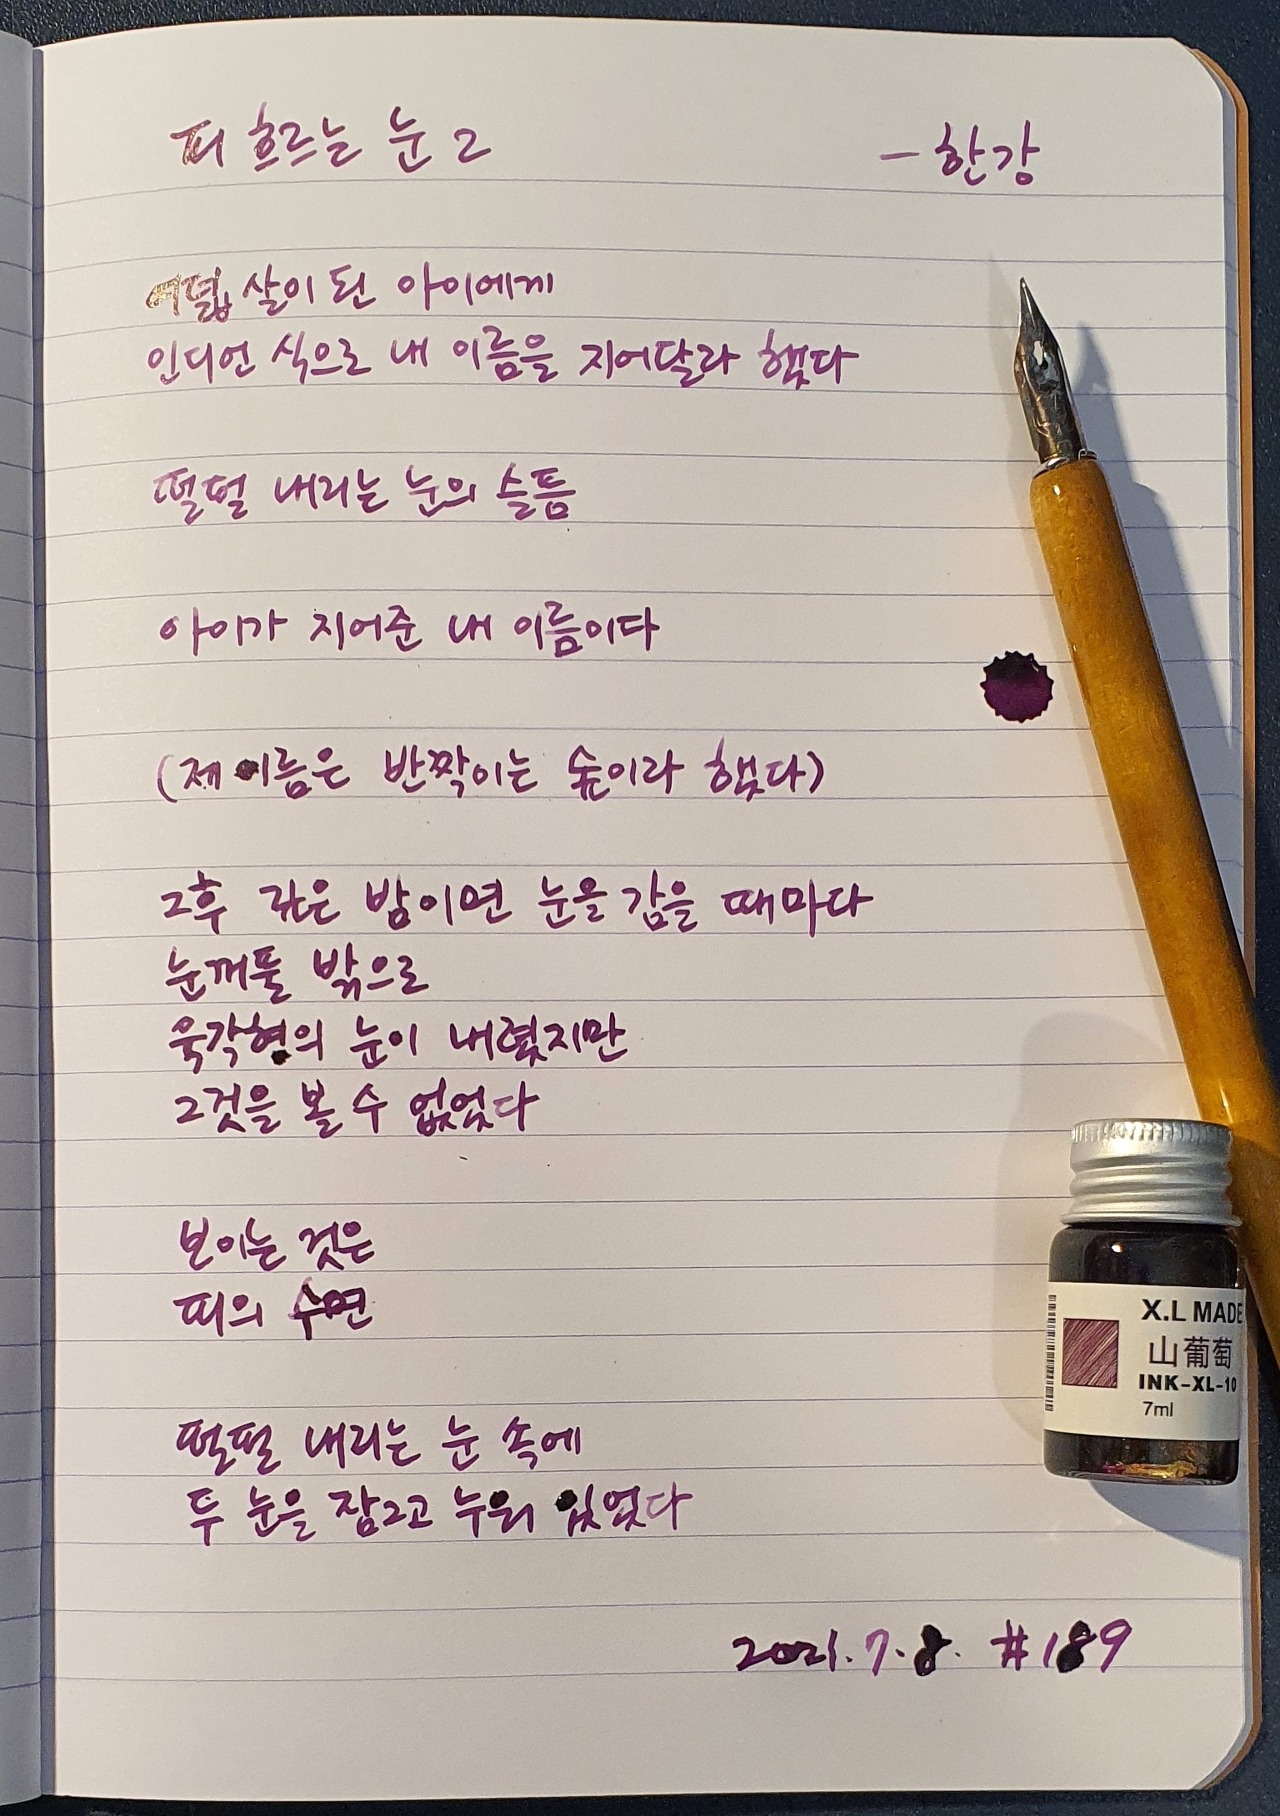 피 흐르는 눈 2
- 한강
여덟 살이 된 아이에게
인디언 식으로 내 이름을 지어달라 했다
펄펄 내리는 눈의 슬픔
아이가 지어준 내 이름이다
(제 이름은 반짝이는 숲이라 했다)
그후 깊은 밤이면 눈을 감을 때마다
눈꺼풀 밖으로
육각형의 눈이 내렸지만
그것을 볼 수 없었다
보이는 것은
피의 수면
펄펄 내리는 눈 속에
두 눈을 잠그고 누워 있었다
2021. 7. 8. #189
X.L MADE
山葡萄
INK-XL-10
7ml